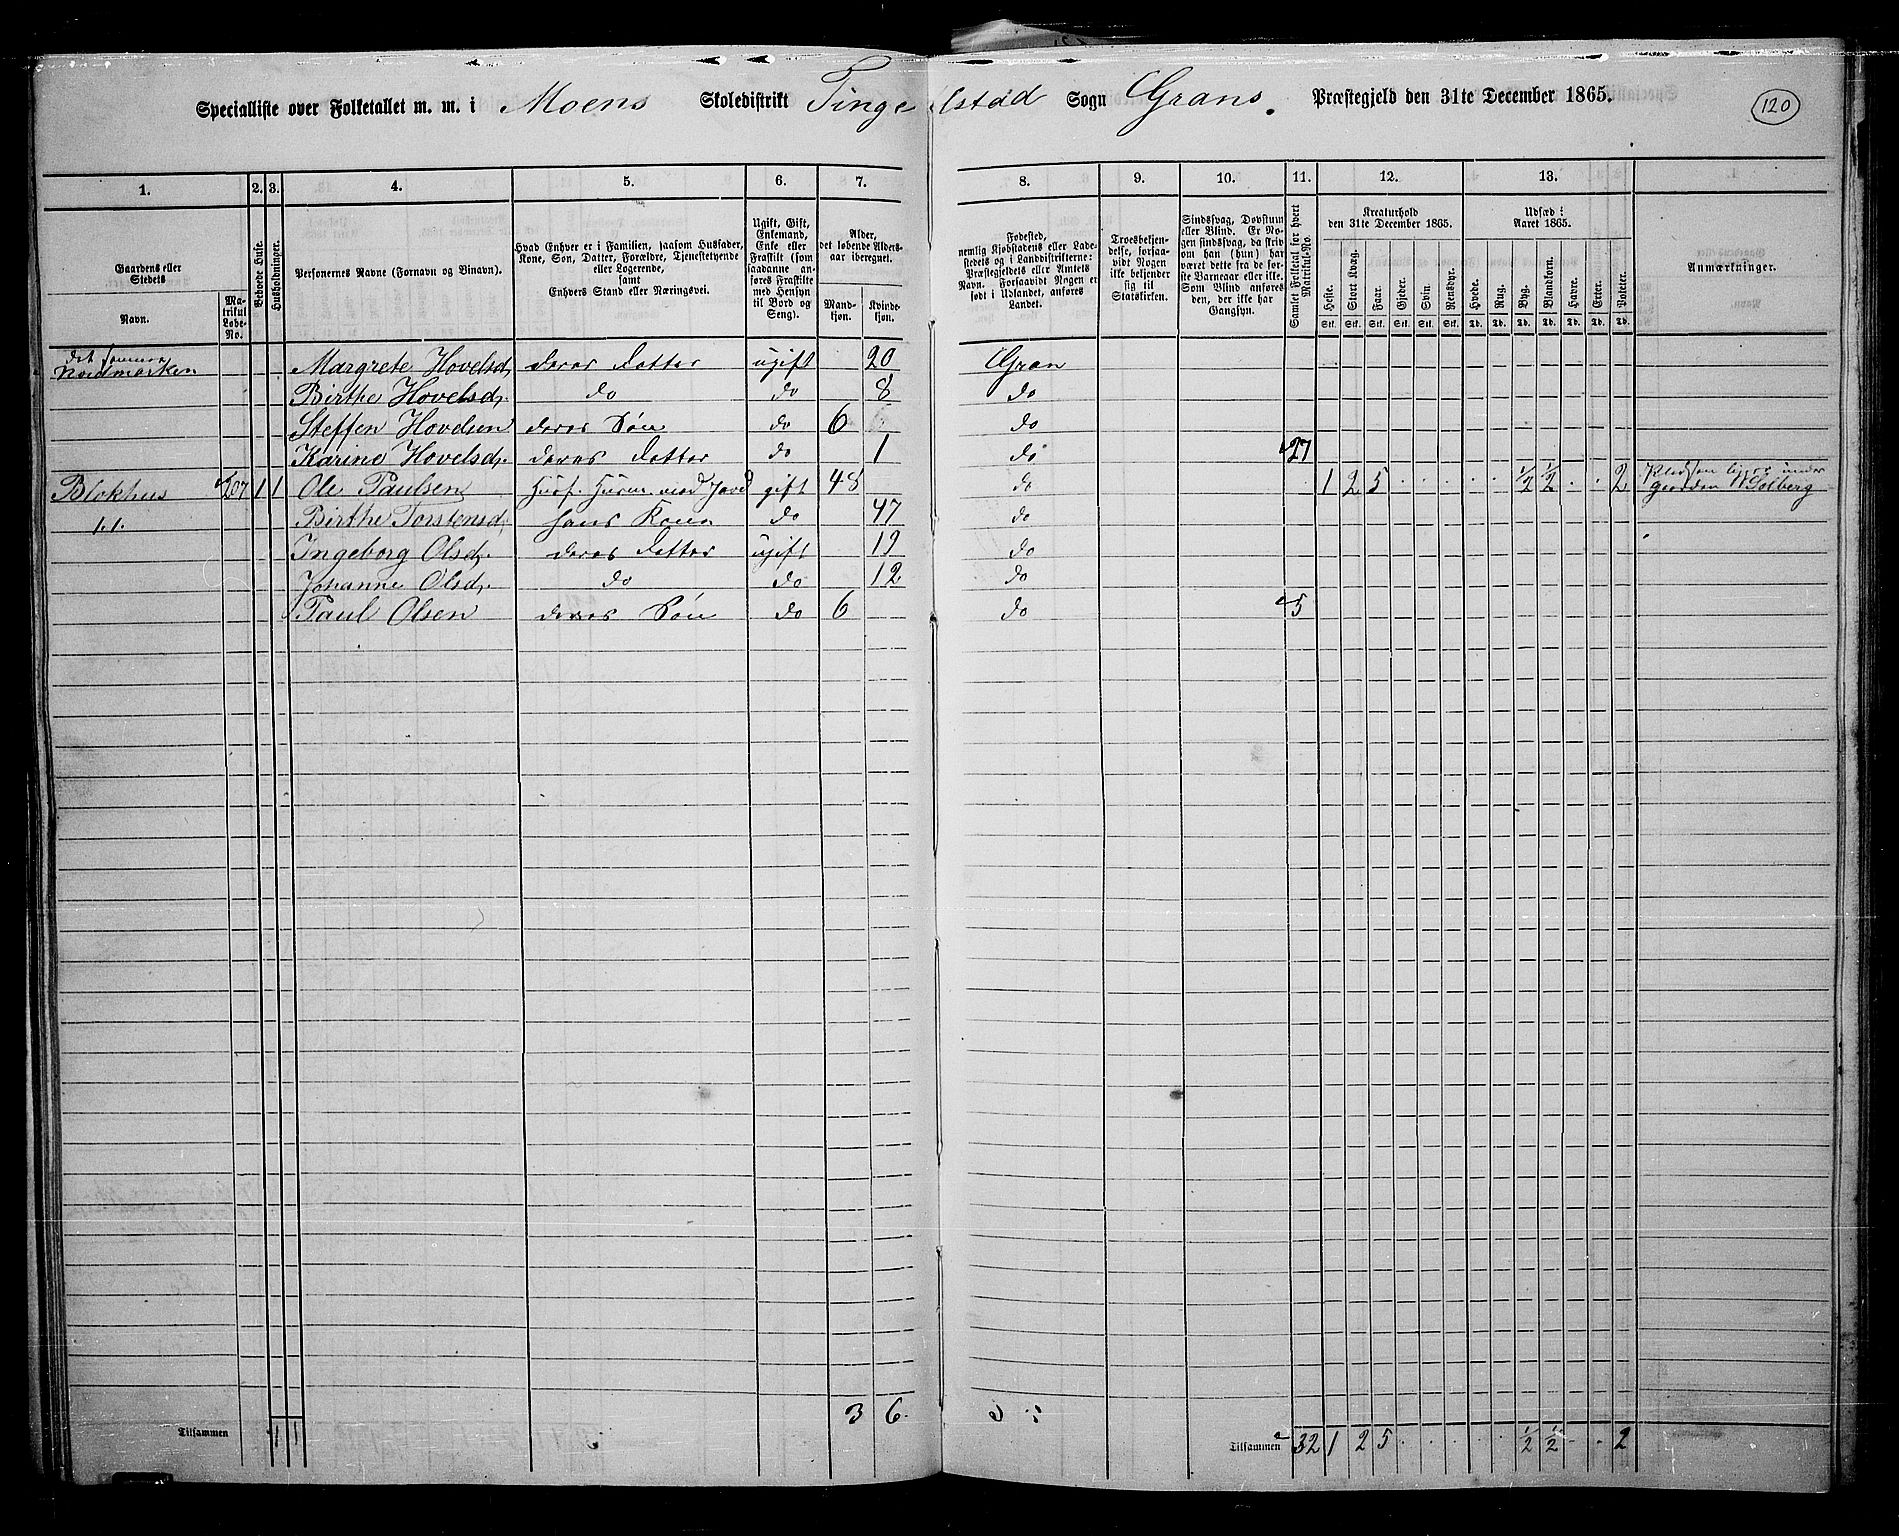 Specialliste over Folketallet m. m. i Moens Skoledistrikt Tingelstad Sogn Grans. Præstegjeld den 31te December 1865. 120
1. 2. 3. 4. 5. 6. 7. 8. 9. 10. 11. 12. 13.
Gaardens eller Stedets
Navn.
Matrikul Løbe-No.
Beboede Huse.
Husholdninger.
Personernes Navne (Fornavn og Binavn).
Hvad Enhver er i Familien, saasom Husfader, Kone, Søn, Datter, Forældre, Tjenestetyende eller Logerende, samt Enhvers Stand eller Næringsvei.
Ugift, Gift, Enkemand, Enke eller Fraskilt (som saadanne anføres Fraskilte med Hensyn til Bord og Seng).
Alder, det løbende Aldersaar iberegnet.
Mandkjøn. Kvindekjøn.
Fødested, nemlig Kjøbstadens eller Ladestedets og i Landdistrikterne: Præstegjeldets eller Amtets Navn. Forsaavidt Nogen er født i Udlandet, anføres Landet.
Troesbekjendelse, forsaavidt Nogen ikke bekjender sig til Statskirken.
Sindssvag, Døvstum eller Blind. Er Nogen sindssvag, da skriv om han (hun) har været dette fra de første Barneaar eller ikke. Som Blind anføres den, der ikke har Gangsyn.
Samlet Folketal for hvert Matrikul-No.
Kreaturhold den 31te December 1865.
Heste. Stort Kvæg. Faar. Gjeder. Svin. Rensdyr.
Stk. Stk. Stk. Stk. Stk. Stk.
Udsæd i Aaret 1865.
Hvede. Rug. Byg. Blandkorn. Havre. Erter. Poteter.
Td. Td. Td. Td. Td. Td. Td.
Anmærkninger.
det samme
Nordmarken Margrete Hovelsd. deres Datter ugift 20 Gran
Birthe Hovelsd. do do 8 do
Steffen Hovelsen deres Søn do 6 do
Karine Hovelsd. deres Datter do 1 do 27
Blokhus 207 1 1 Ole Paulsen Husf. Husm. med Jord gift 48 do 1 2 5 ½ ½ 2 Pladsen ligger under Gaarden Solberg
Birthe Torstensd. hans Kone do 47 do
Ingeborg Olsd. deres Datter ugift 19 do
Johanne Olsd. do do 12 do
Paul Olsen deres Søn do 6 do 5
3 6.
Tilsammen 1 1 Tilsammen 32 1 2 5 ½ ½ 2